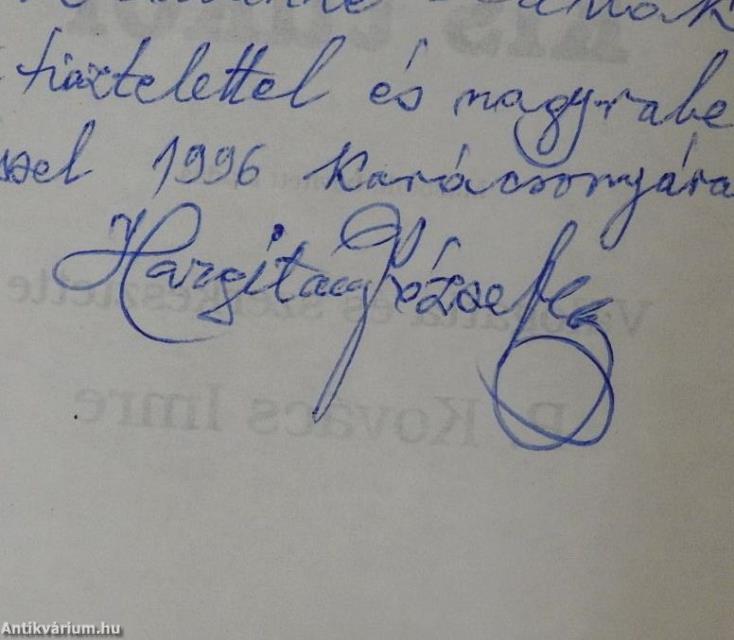 tisztelettel és nagyrabe
ssel 1996 Karácsonyára
Hargitay József
Válogatta és szerkesztette
P. Kovács Imre
Antikvárium.hu